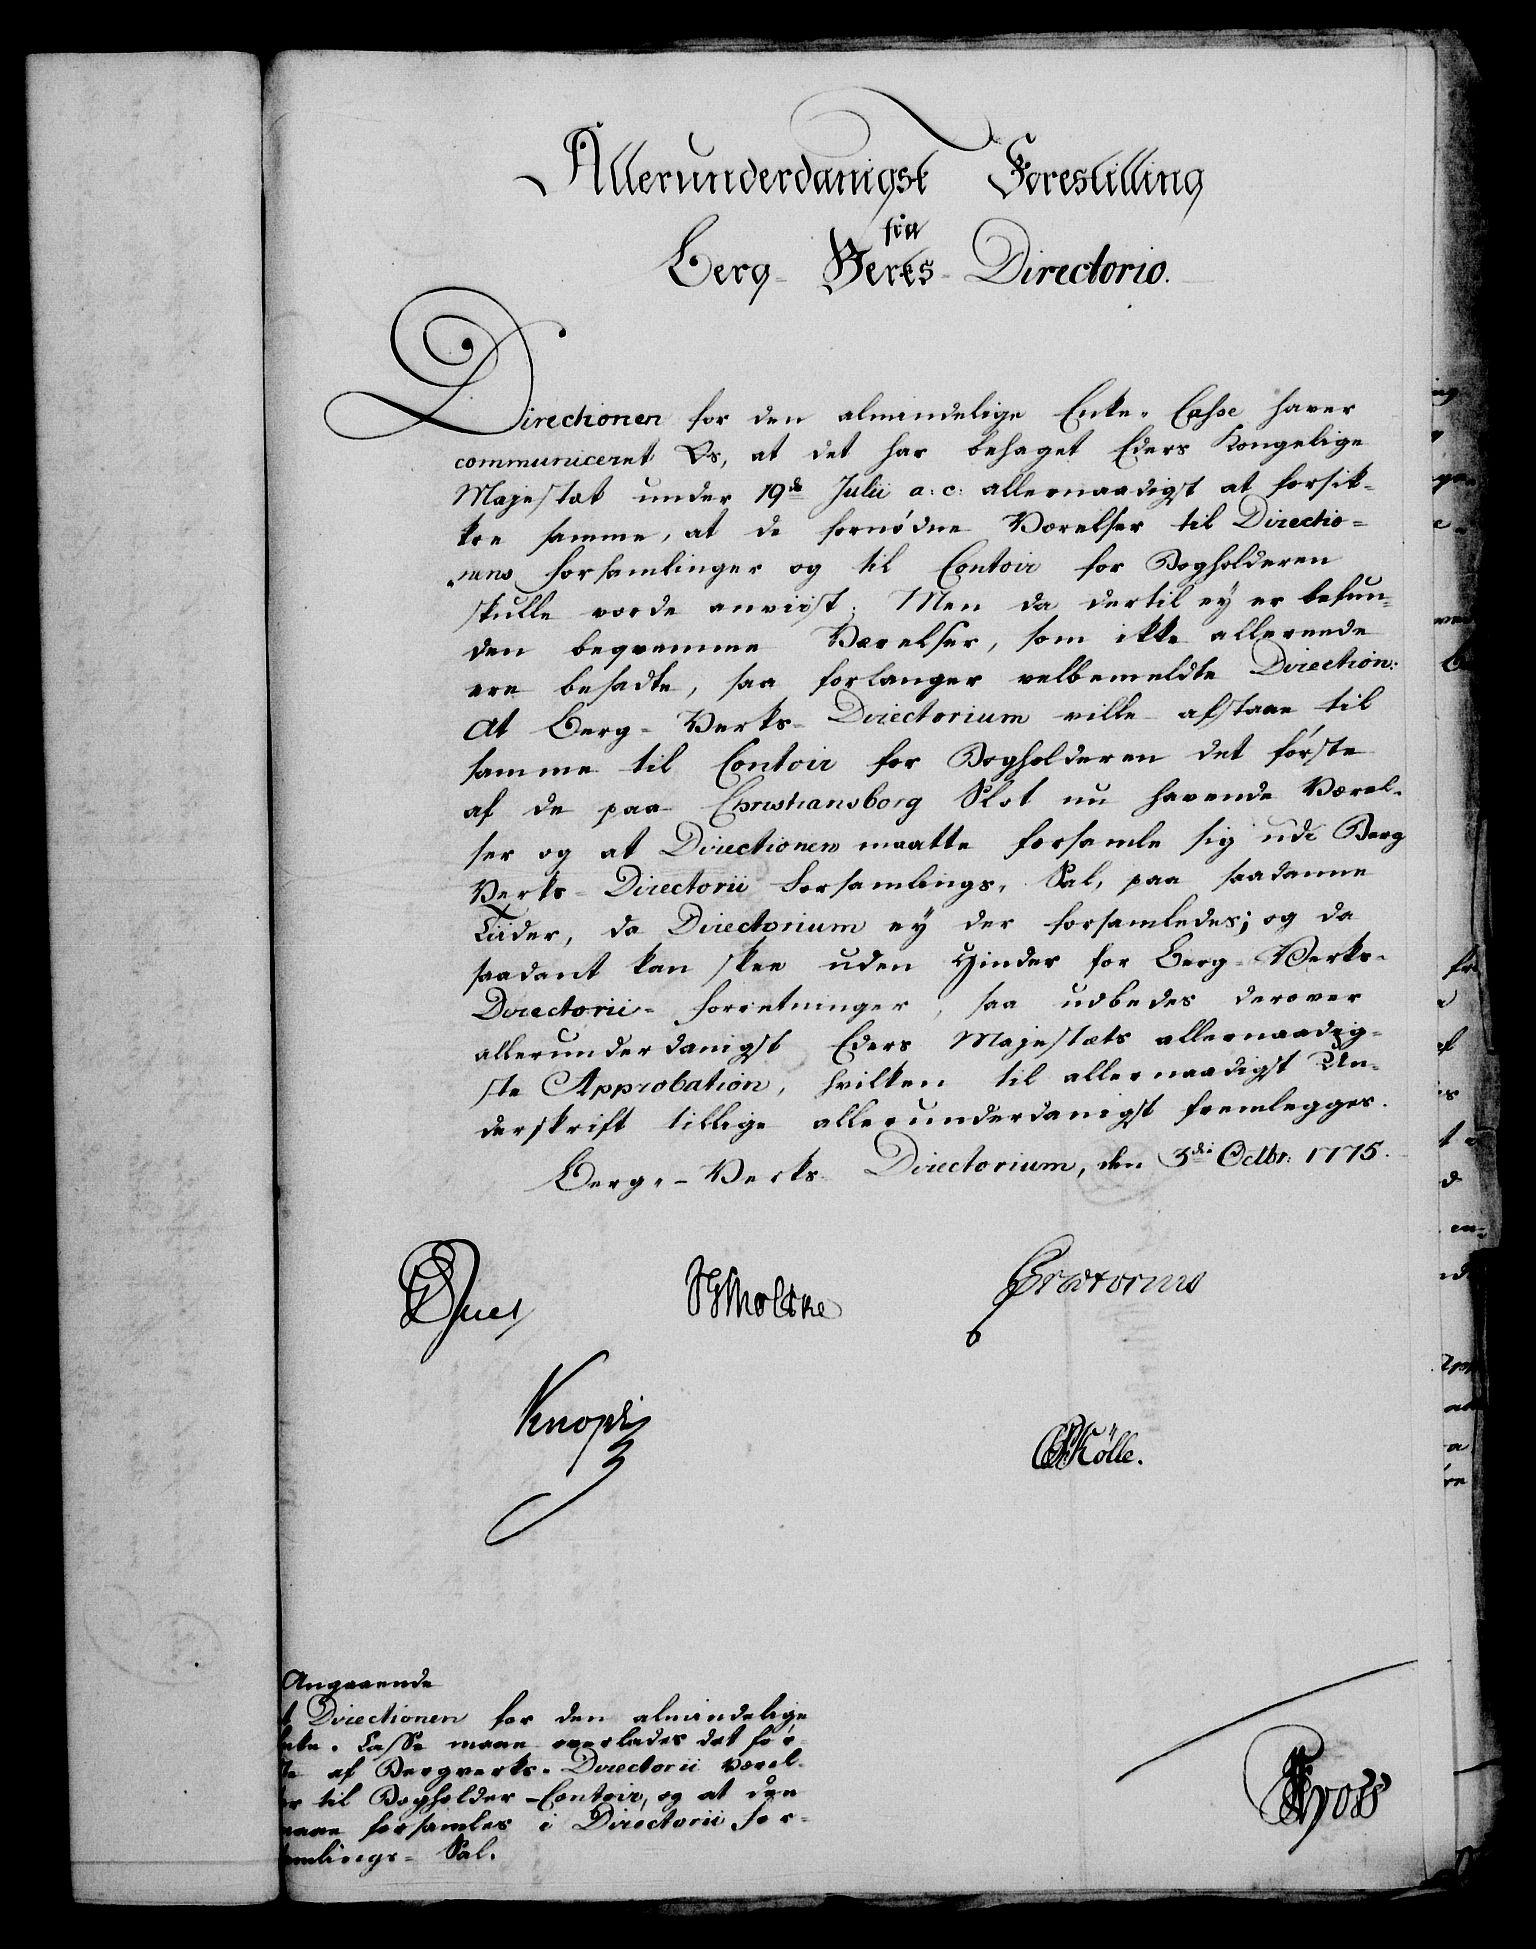 Allerunderdanigst Forestilling
fra
Berg-Verks-Directorio.
Directionen for den almindelige Enke-Casse haver
communiceret Os, at det har behaget Eders Kongelige
Majestæt under 19de Julii a: c: allernaadigst at forsik-
kre samme, at de fornødne Værelser til Directio-
nens forsamlinger og til Contoir for Bogholderen
skulle vorde anviist; Men da dertil ey er befun-
den beqvemme Værelser, som ikke allerede
ere besadte, saa forlanger velbemeldte Direction:
at Berg-Verks-Directorium ville afstaae til
samme til Contoir for Bogholderen det første
af de paa Christiansborg Slot nu havende Værel-
ser og at Directionen maatte forsamle sig udi Berg
Verks-Directorii Forsamlings-Sal, paa saadanne
Tiider, da Directorium ey der forsamledes; og da
saadant kan skee uden Hinder for Berg-Verks-
Directorii-forretninger, saa udbedes derover
allerunderdanigst Eders Majestæts allernaadig-
ste Approbation, hvilken til allernaadigst Un-
derskrift tillige allerunderdanigst fremlegges.
Berg-Verks Directorium, den 3die Octbr: 1775.
Juel
Moltke
Prætorius
Knoph
Kölle.
Angaaende
t Directionen for den almindelige
nke-Casse maae overlades det før-
te af Bergverks-Directorii Værel-
er til Bogholder-Contoir, og at den
maae forsamles i Directorii For-
amlings-Sal.